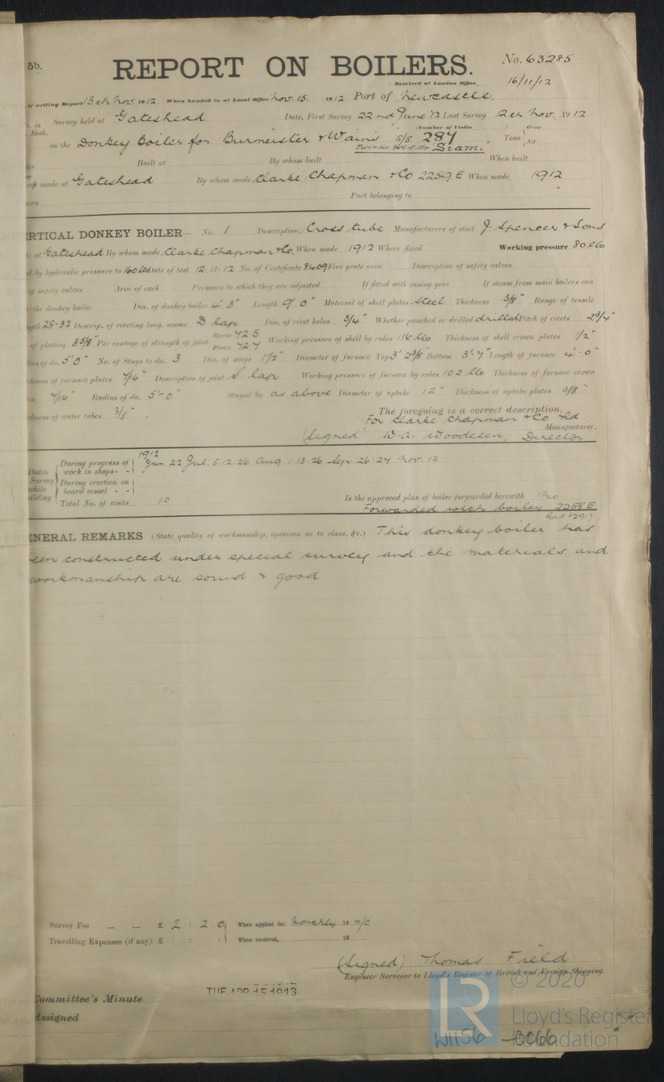 5b.
REPORT ON BOILERS.
No. 63285
Received at London Office
16/11/12
of writing Report 13th Nov. 1912 When handed in at Local Office Nov. 15. 1912 Port of Newcastle.
Survey held at Gateshead Date, First Survey 22nd June 12 Last Survey 12th Nov. 1912
(Number of Visits
on the Donkey Boiler for Burmeister & Wain's S/S 287 Tons
"Siam."
Built at By whom built When built
made at Gateshead By whom made Clarke Chapman & Co 2259E When made 1912
Port belonging to
ERTICAL DONKEY BOILER— No. 1 Description Cross tube Manufacturers of steel J. Spencer & Sons
at Gateshead By whom made Clarke Chapman & Co. When made 1912 Where fixed Working pressure 80 lbs
by hydraulic pressure to 160 lbs Date of test 12-11-12 No. of Certificate 8409 Fire grate area Description of safety valves
of safety valves Area of each Pressure to which they are adjusted If fitted with easing gear If steam from main boilers can
the donkey boiler Dia. of donkey boiler 4' 3" Length 9' 0" Material of shell plates Steel Thickness 3/8" Range of tensile
25-32 Descrip. of riveting long. seams D lap Dia. of rivet holes 3/4" Whether punched or drilled drilled Pitch of rivets 2 3/4"
of plating Per centage of strength of joint Rivets 72.5 Plates 72.7 Working pressure of shell by rules 116 lbs Thickness of shell crown plates 1/2"
of do. 5' 0" No. of Stays to do. 3 Dia. of stays 1 1/2" Diameter of furnace Top 3' 2 3/8" Bottom 3' 7" Length of furnace 4'-0"
of furnace plates 7/16" Description of joint S. lap Working pressure of furnace by rules 102 lbs Thickness of furnace crown
7/16" Radius of do. 5'-0" Stayed by as above Diameter of uptake 12" Thickness of uptake plates 3/8"
of water tubes 3/8"
The foregoing is a correct description,
For Clarke Chapman & Co Ld
(Signed) W. A. Woodeson, Director Manufacturer.
Dates
Survey
while
building
1912
During progress of work in shops - - Jun 22 Jul. 5. 12. 26 Aug. 1. 13. 26 Sep. 26. 27 Nov. 12
During erection on board vessel - - -
Total No. of visits 10
Is the approved plan of boiler forwarded herewith No
Forwarded with boiler 2258E
ENERAL REMARKS (State quality of workmanship, opinions as to class, &c.) This donkey boiler has
een constructed under special survey and the materials and
workmanship are sound & good
Survey Fee ... ... £ 2 : 2 : 0 When applied for, Monthly 19 a/c
Travelling Expenses (if any) £ : : When received, 19
(Signed) Thomas Field
Engineer Surveyor to Lloyd's Register of British and Foreign Shipping.
TUE APR 15 1913
Committee's Minute
Assigned
LR
© 2020
Lloyd's Register
Foundation
W1156 - 0066